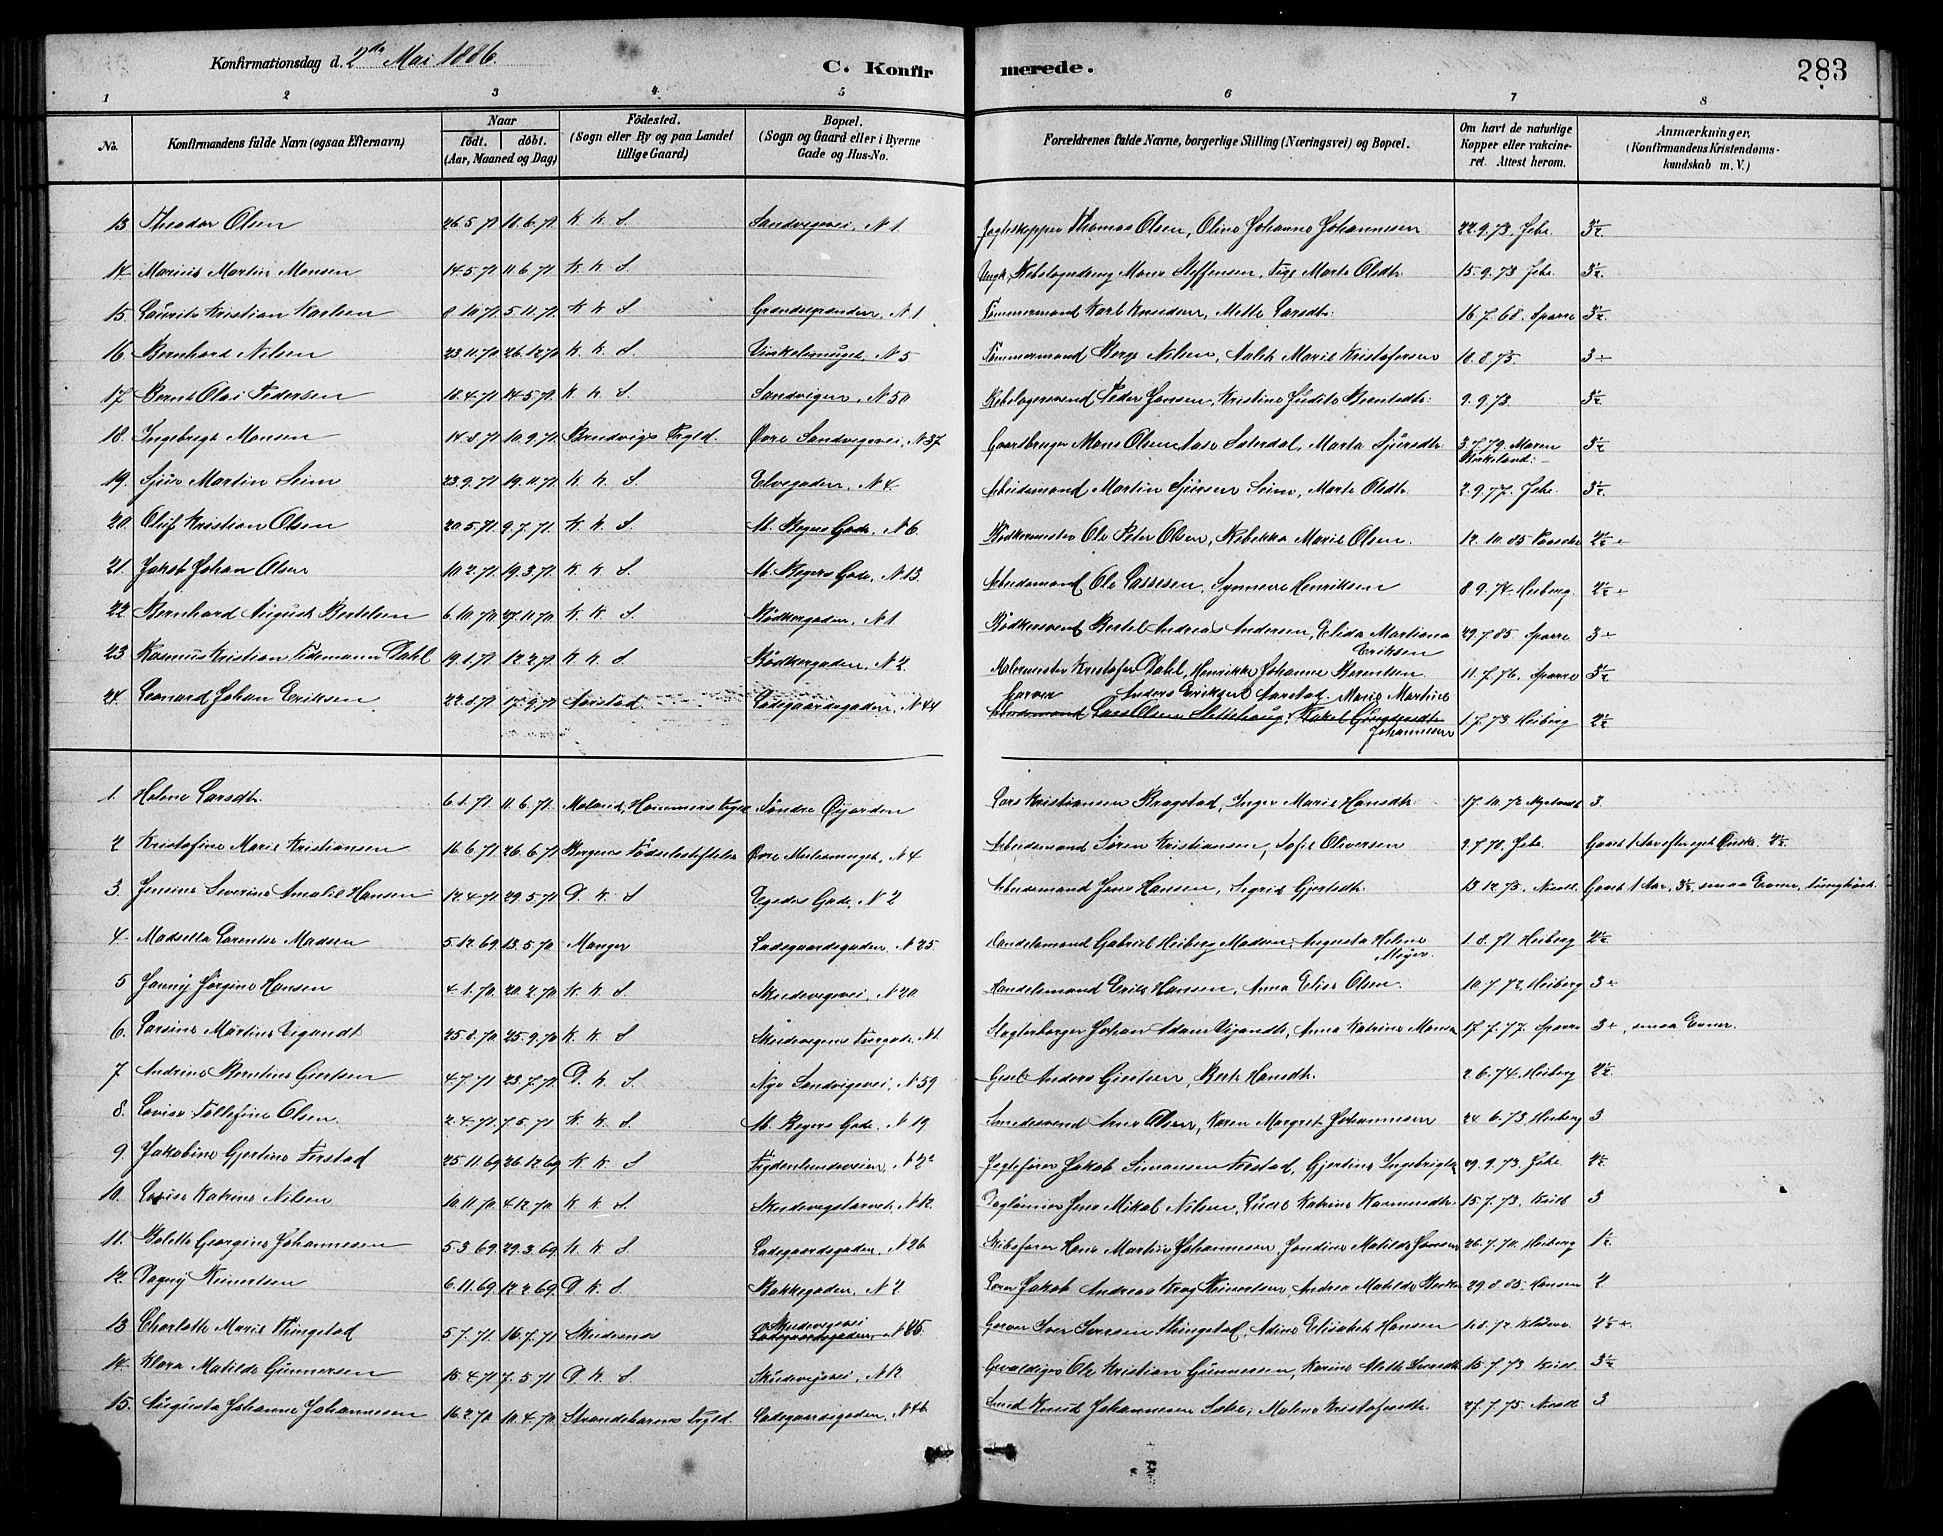 Konfirmationsdag d. 2de Mai 1886. C. Konfirmerede. 283
1 2 3 4 5 6 7 8
No. Konfirmandens fulde Navn (ogsaa Efternavn) Naar födt. döbt. (Aar, Maaned og Dag) Födested. (Sogn eller By og paa Landet tillige Gaard) Bopæl. (Sogn og Gaard eller i Byerne Gade og Hus-No. Forældrenes fulde Navne, borgerlige Stilling (Næringsvei) og Bopæl. Om havt de naturlige Kopper eller vakcineret. Attest herom. Anmærkninger, (Konfirmandens Kristendomskundskab m. V.)
13 Theodor Olsen 26.5.71 10.6.71 K. K. S Sandvigsvei, N 1 Thomas Olsen, Oline Johanne Johannesen 22.9.73. Jebe.
14. Marius Martin Monsen 14.5.71 11.6.71 K. K. S Mons Steffensen, Marte Olsdtr. 15.9.73 Jebe
15. Laurits Kristian Karlsen 8.10.71 5.11.71 K. K. S N 1 Tømmermand Karl Knudsen, Mette Larsdtr. 16.7.68. Sparre
16. Bernhard Nilsen 23.11.70 26.12.70 K. K. S. Vinkelsmuget, N 5 Tømmermand Nilsen, Marie Kristofersen 10.8.75. 3 +
17. Bernt Olai Pedersen 10.4.71 14.5.71 K. K. S Sandvigen, N 50 Rebslagersvend Peder Jansen, Kristine Judite Berntsdtr. 9.9.73
18. Ingebrigt Monsen 14.8.71 10.9.71 Bruvigs Prgld. Øvre Sandvigsvei, N 37 Gaardbruger Mons Olsen Sæterdal, Marta Sjursdtr. 3.7.79. Maren Birkeland.
19. Sjur Martin Seim 23.9.71 19.11.71 K. K. S. Elvegaden, N 4. Arbeidsmand Martin Sjursen Seim, Marte Olsdtr. 2.9.77. Jebe
20 Oluf Kristian Olsen 20.5.71 9.7.71. K. K. S. M. Begers Gade, N 6. Bødkermester Ole Peter Olsen, Rebekka Marie Olsen. 12.10.85 Paasche
21. Jakob Johan Olsen 10.2.71. 19.3.71. K. K. S. M. Begers Gade, N 13. Arbeidsmand Ole Lassesen, Synneve Henriksen 8.9.74. Heiberg
22 Bernhard August Bertelsen 6.10.70 27.11.70 K. K. S Bødkergaden, N 1 Bødkersvend Bertel Andreas Andersen, Elida Martiana Eriksen 29.7.85 Sparre 3 +
23 Rasmus Kristian Tidemann Dahl 19.1.71 12.2.71 K. K. S Bødkergaden, N 2. Malermester Kristofer Dahl, Henrikke Johanne Berentsen 11.7.76. Sparre
24. Leonard Johan Eriksen 22.8.71 17.9.71 Aarstad Ladegaardsgaden, N 44 Garver Anders Eriksen Aarstad. Marie Martine Johannesen 1.7.73. Heiberg
1. Helene Larsdtr. 6.1.71. 11.6.71. Hammers Prgld Søndre Øyjorden Lars Kristiansen Brogstad, Inger Marie Hansdtr. 17.10.72 3.
2 Kristofine Marie Kristiansen 16.6.71 26.6.71 Bergens Fødselsstiftelse Øvre N 4 Arbeidsmand Søren Kristiansen, Sofie Oliversen 9.7.70. Jebe. Gaaet 1 Aar efter eget Ønske.
3. Jensine Severine Amalie Hansen 12.4.71 29.5.71 D. K. S Egedes Gade, N 2 Arbeidsmand Jens Hansen, Sigrid Gjertsdtr. 13.12.73. Gaaet 1 Aar, smaa Evner, tunghørt.
4. Madsella Lorentse Madsen 5.12.69. 13.5.70 Manger Ladegaardsgaden, N 25. Handelsmand Gabriel Heiberg Madsen, Augusta Helene Meyer. 1.8.71 Heiberg
5 Janny Jørgine Hansen 4.1.70. 20.2.70 K. K. S. Skudevigsvei, N 20. Handelsmand Erik Hansen, Anna Elise Olsen. 10.7.72. Heiberg 3 +
6. Larsine Martine Vigandt 25.8.70 25.9.70 K. K. S N 1. Slagterborger Johan Adam Vigandt, Anna Katrine Monsen 17.7.77. Sparre 3 +, smaa Evner.
7 Andrine Berntine Giertsen 4.7.71 23.7.71 D. K. S. Nye Sandvigsvei, N 59 Anders Giertsen, Berte Hansdtr. 2.6.74. Heiberg
8. Lovise Tollefine Olsen 2.4.71. 7.5.71 K. K. S. M. Begers Gade, N 19. Smedesvend Arne Olsen, Karen Margrete Johannesen 24.6.73. Heiberg 3
9. Jakobine Gjertine Ferstad 25.11.69 26.12.69 K. K. S N 2 Jakob Simonsen Ferstad, Gjertine 29.9.73. Jebe
10. Lovise Katrine Nilsen 10.11.70 4.12.70 K. K. S. N 12. Jens Mikal Nilsen, Katrine Rasmusdtr. 15.7.73. 3
11. Bolette Georgine Johannesen 5.3.69. 29.3.69. K. K. S Ladegaardsgaden, N 26 Skibsfører Hans Martin Johannesen, Jondine Matilde 26.7.70. Heiberg
12. Dagny Reinertsen 6.11.69. 12.2.69 D. K. S Bakkegaden, N 2 Jakob Andreas Krog Reinertsen, Andrea Matilde 29.8.85. Hansen 2
13. Charlotte Marie Thingstad 5.7.71. 16.7.71. Skudenes Skudevigsvei N 45. Garver Iver Iversen Thingstad, Adine Elisabet Hansen
14. Klara Matilde Gunnersen 15.4.71 7.5.71 D. K. S. Skudevigsvei, N 12 Ole Kristian Gunnersen, Karine Mette 15.7.73.
15. Augusta Johanne Johannesen 16.2.70 10.4.70 Strandebarms Prgld. Ladegaardsgaden, N 46 Smed Knud Johannesen, Malene Kristofersdtr. 27.7.75. 3